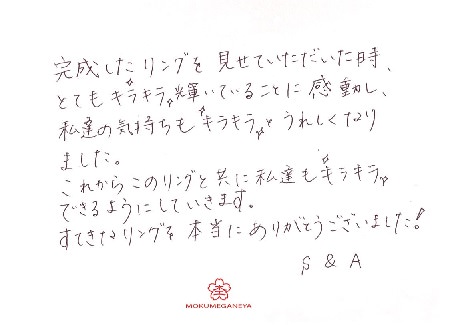 完成したリングを見せていただいた時、
とてもキラキラ輝いていることに感動し、
私達の気持ちもキラキラとうれしくなり
ました。
これからこのリングと共に私達もキラキラ
できるようにしていきます。
すてきなリングを本当にありがとうございました!
S & A
MOKUMEGANEYA